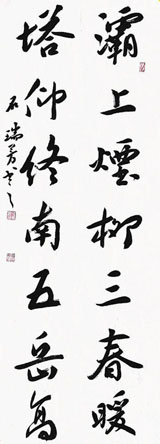 灞上煙柳三春暖
塔仰終南五岳高
石瑞芳書